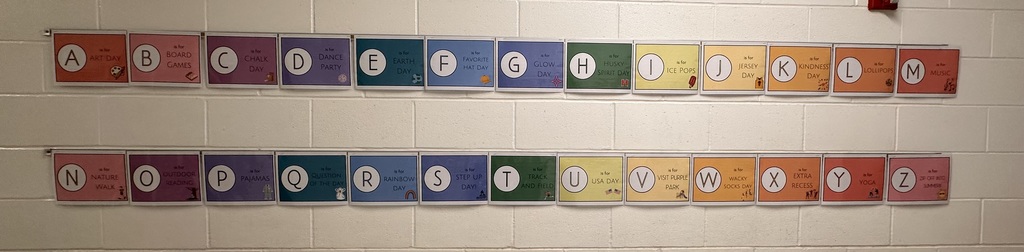 A is for ART DAY
B is for BOARD GAMES
C is for CHALK DAY
D is for DANCE PARTY
E is for EARTH DAY
F is for FAVORITE HAT DAY
G is for GLOW DAY
H is for HUSKY SPIRIT DAY
I is for ICE POPS
J is for JERSEY DAY
K is for KINDNESS DAY
L is for LOLLIPOPS
M is for MUSIC
N is for NATURE WALK
O is for OUTDOOR READING
P is for PAJAMAS
Q is for QUESTION OF THE DAY
R is for RAINBOW DAY
S is for STEP UP DAY!
T is for TRACK AND FIELD
U is for USA DAY
V is for VISIT PURPLE PARK
W is for WACKY SOCKS DAY
X is for EXTRA RECESS
Y is for YOGA
Z is for INTO SUMMER!